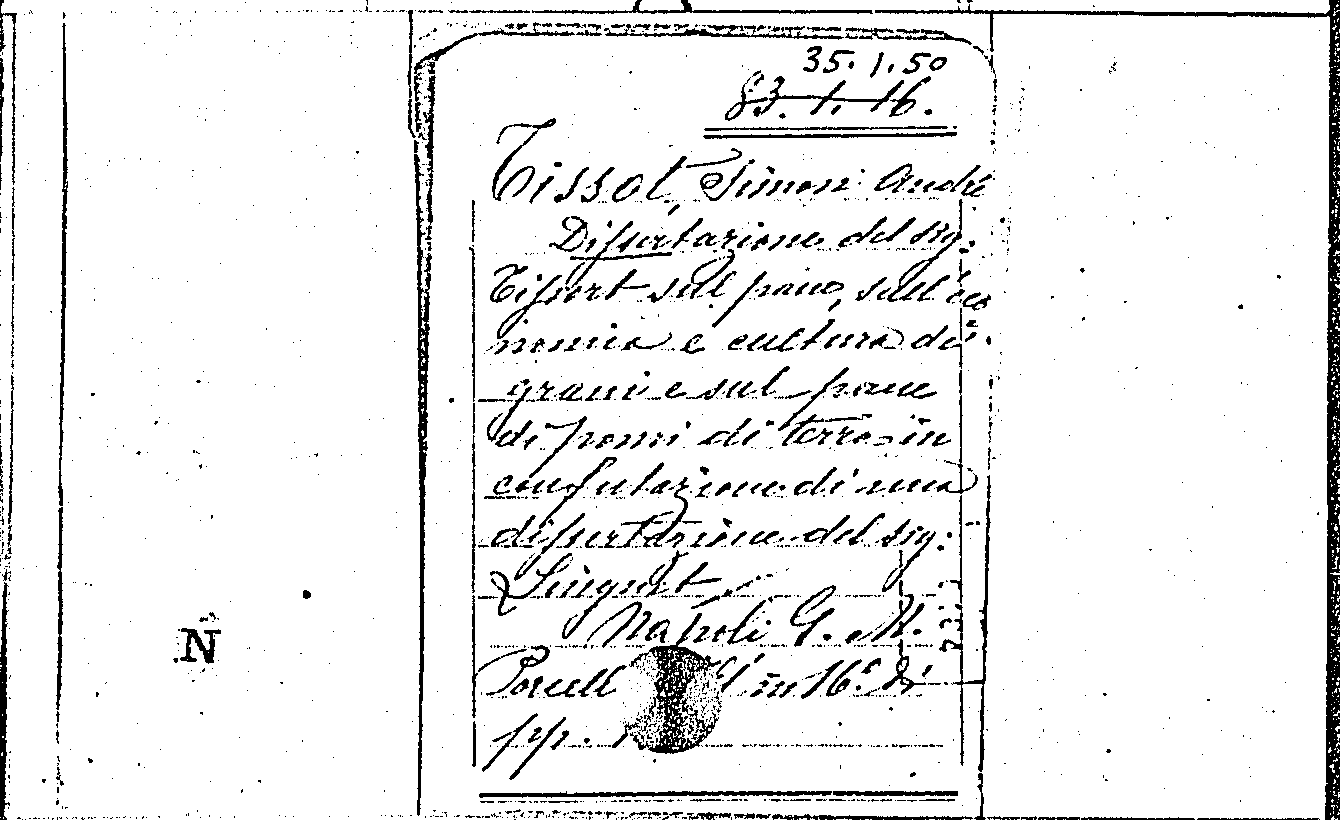 35. 1. 50
83. 1. 16.
Tissot, Simon André
Dissertazione del sig:
Tissort sul pane, sull'eco
nomia e cultura dei
grani e sul pane
di pomi di terra in
confutazione di una
dissertazione del sig:
Linguet
Napoli G. M.
Porcell in 16.° di
pp.
N